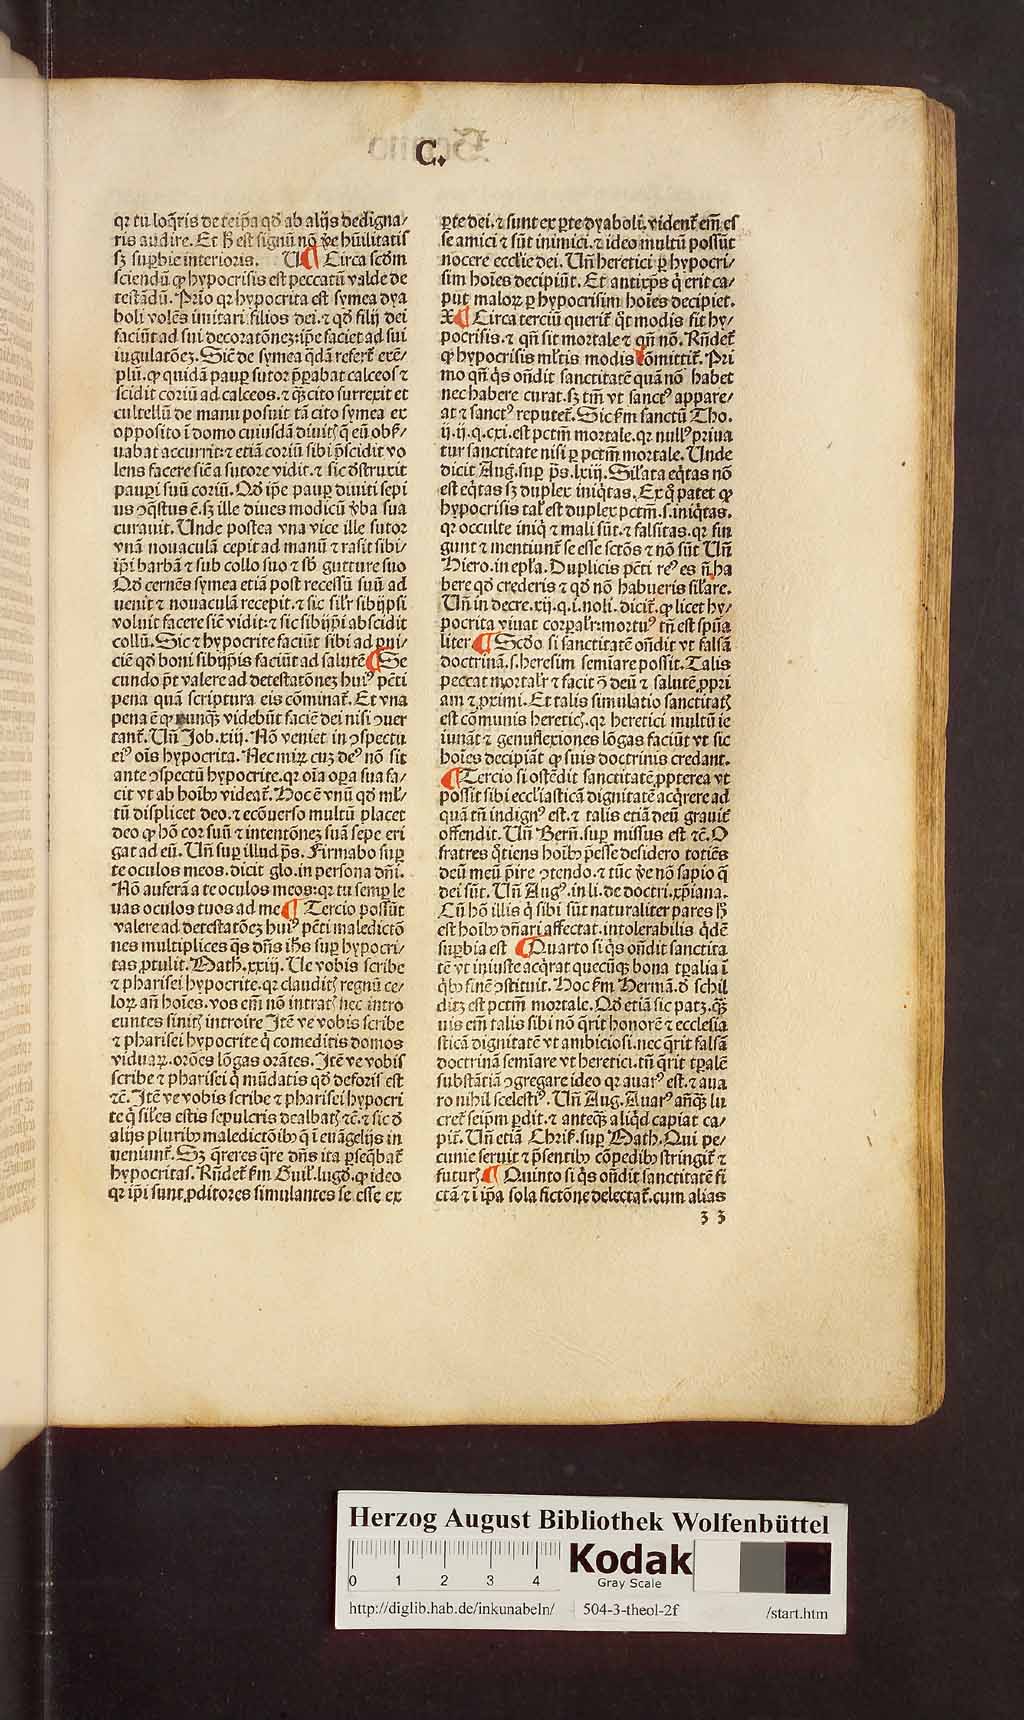 C.
qꝛ tu loq̄ris de teip̄a qd̛ ab alijs dedigna⸗
ris audire. Et h̄ est signū nō ꝟe hūilitatis
sꝫ suꝑbie interioris. U ¶ Circa scd̛m
sciendū ꝙ hypocrisis est peccatū valde de
testādū. Prīo qꝛ hypocrita est symea dya
boli volēs imitari filios dei. ⁊ qd̛ filij dei
faciūt ad sui decoratōneꝫ: ip̄e faciet ad sui
iugulatōeꝫ. Sic̄ de symea q̄dā refert᷑ exē⸗
plū. ꝙ quidā pauꝑ sutor p̄ꝑabat calceos ⁊
scidit coriū ad calceos. ⁊ qꝫ cito surrexit et
cultellū de manu posuit tā cito symea ex
opposito ī domo cuiusdā diuitꝭ q̄ eū obẜ⸗
uabat accurrit: ⁊ etiā coriū sibi p̄scidit vo
lens facere sic̄ a sutore vidit. ⁊ sic d̛struxit
pauꝑi suū coriū. Qd̛ ip̄e pauꝑ diuiti sepi
us ꝯq̄stus ē. sꝫ ille diues modicū ꝟba sua
curauit. Unde postea vna vice ille sutor
vnā nouaculā cepit ad manū ⁊ rasit sibi⸗
ip̄i barbā ⁊ sub collo suo ⁊ sb̛ gutture suo
Qd̛ cernēs symea etiā post recessū suū ad
uenit ⁊ nouaculā recepit. ⁊ sic sil̛r sibijpsi
voluit facere sic̄ vidit: ⁊ sic sibijp̄i abscidit
collū. Sic ⁊ hypocrite faciūt sibi ad ꝑni⸗
ciē qd̛ boni sibijp̄is faciūt ad salutē ¶ Se
cundo p̄t valere ad detestatōneꝫ huiꝰ pc̄ti
pena quā scriptura eis cōminat᷑. Et vna
pena ē ꝙ nunqꝫ videbūt faciē dei nisi ꝯuer
tant᷑. Un̄ Job. xiij. Nō veniet in ꝯspectu
eiꝰ ois̄ hypocrita. Nec miꝝ cuꝫ deꝰ nō sit
ante ꝯspectū hypocrite. qꝛ oīa oꝑa sua fa⸗
cit vt ab hoībꝰ videat᷑. Hoc ē vnū qd̛ ml̛⸗
tū displicet deo. ⁊ ecōuerso multū placet
deo ꝙ hō cor suū ⁊ intentōneꝫ suā sepe eri
gat ad eū. Un̄ suꝑ illud ps̄. Firmabo suꝑ
te oculos meos. dicit glo. in persona dn̄i.
Nō auferā a te oculos meos: qꝛ tu semꝑ le
uas oculos tuos ad me ¶ Tercio possūt
valere ad detestatōeꝫ huiꝰ pc̄ti maledictō
nes multiplices q̄s dn̄s ih̄s suꝑ hypocri⸗
tas ꝓtulit. Math. xxiij. Ue vobis scribe
⁊ pharisei hypocrite. qꝛ clauditꝭ regnū ce⸗
loꝝ an̄ hoīes. vos em̄ nō intratꝭ nec intro
euntes sinitꝭ introire Itē ve vobis scribe
⁊ pharisei hypocrite q̄ comeditis domos
viduaꝝ. orōes lōgas orātes. Itē ve vobis
scribe ⁊ pharisei q̄ mūdatis qd̛ deforis est
⁊c̄. Itē ve vobis scribe ⁊ pharisei hypocri
te q̄ sil̛es estis sepulcris dealbatꝭ ⁊c̄. ⁊ sic d̛
alijs pluribꝰ maledictōibꝰ q̄ ī euāgelijs in
ueniunt᷑. Sꝫ q̄reres q̄re dn̄s ita ꝑseq̄bat᷑
hypocritas. Rn̄det᷑ ẜm Guil. lugd̛. ꝙ ideo
qꝛ ip̄i sunt ꝓditores simulantes se esse ex
ꝑte dei. ⁊ sunt ex ꝑte dyaboli. vident᷑ em̄ es
se amici ⁊ sūt inimici. ⁊ ideo multū possūt
nocere ecclīe dei. Un̄ heretici ꝑ hypocri⸗
sim hoīes decipiūt. Et antixp̄s q̄ erit ca⸗
put maloꝝ ꝑ hypocrisim hoīes decipiet.
X ¶ Circa terciū querit᷑ q̄t modis fit hy⸗
pocrisis. ⁊ qn̄ sit mortale ⁊ qn̄ nō. Rn̄det᷑
ꝙ hypocrisis ml̛tis modis cōmittit᷑. Pri
mo qn̄ q̄s on̄dit sanctitatē quā nō habet
nec habere curat. sꝫ tm̄ vt sanctꝰ appare⸗
at ⁊ sanctꝰ reputet᷑. Sic ẜm sanctū Tho.
ij. ij. q. cxi. est pctm̄ mortale. qꝛ nullꝰ priua
tur sanctitate nisi ꝑ pctm̄ mortale. Unde
dicit Aug. suꝑ ps̄. lxiij. Sil̛ata eq̄tas nō
est eq̄tas sꝫ duplex iniq̄tas. Ex q̄ patet ꝙ
hypocrisis tal̛ est duplex pctm̄. s. iniq̄tas.
qꝛ occulte iniq̄ ⁊ mali sūt. ⁊ falsitas. qꝛ fin
gunt ⁊ mentiunt᷑ se esse sctōs ⁊ nō sūt Un̄
Hiero. in epl̛a. Duplicis pc̄ti reꝰ es n̄ ha
bere qd̛ crederis ⁊ qd̛ nō habueris sil̛are.
Un̄ in decre. xij. q. i. noli. dicit᷑. ꝙ licet hy⸗
pocrita viuat corꝑal̛r: mortuꝰ tn̄ est spūa
liter ¶ Scd̛o si sanctitatē on̄dit vt falsā
doctrinā. s. heresim semīare possit. Talis
peccat mortal̛r ⁊ facit ꝯ̄ deū ⁊ salutē ꝓpri
am ⁊ ꝓximi. Et talis simulatio sanctitatꝭ
est cōmunis hereticꝭ. qꝛ heretici multū ie
iunāt ⁊ genuflexiones lōgas faciūt vt sic
hoīes decipiāt ꝙ suis doctrinis credant.
¶ Tercio si ostēdit sanctitatē ꝓpterea vt
possit sibi eccl̛iasticā dignitatē acq̄rere ad
quā tn̄ indignꝰ est. ⁊ talis etiā deū grauit᷑
offendit. Un̄ Bern̄. suꝑ missus est ⁊c̄. O
fratres q̄tiens hoībꝰ p̄esse desidero totiēs
deū meū p̄ire ꝯtendo. ⁊ tūc ꝟe nō sapio q̄
dei sūt. Un̄ Augꝰ. in li. de doctri. xp̄iana.
Cū hō illis q̄ sibi sūt naturaliter pares h̄
est hoībꝰ dn̄ari affectat. intolerabilis q̄dē
suꝑbia est ¶ Quarto si q̄s on̄dit sanctita
tē vt iniuste acq̄rat quecūqꝫ bona tꝑalia ī
q̄bꝰ finē ꝯstituit. Hoc ẜm Hermā. d̛ schil
ditꝫ est pctm̄ mortale. Qd̛ etiā sic patꝫ. qꝫ
uis em̄ talis sibi nō q̄rit honorē ⁊ ecclesia
sticā dignitatē vt ambiciosi. nec q̄rit falsā
doctrinā semīare vt heretici. tn̄ q̄rit tꝑalē
substātiā ꝯgregare ideo qꝛ auarꝰ est. ⁊ aua
ro nihil scelestiꝰ. Un̄ Aug. Auarꝰ an̄qꝫ lu
cret᷑ seip̄m ꝑdit. ⁊ anteqꝫ aliq̄d capiat ca⸗
pit᷑. Un̄ etiā Chriẜ. suꝑ Math. Qui pe⸗
cunie seruit ⁊ p̄sentibꝰ cōpedibꝰ stringit᷑ ⁊
futurꝭ. ¶ Quinto si q̄s on̄dit sanctitatē fi
ctā ⁊ ī ip̄a sola fictōne delectat᷑. cum alias
ʒ 3
Herzog August Bibliothek Wolfenbüttel
0 1 2 3 4
Kodak
Gray Scale
http://diglib.hab.de/inkunabeln/ 504-3-theol-2f /start.htm